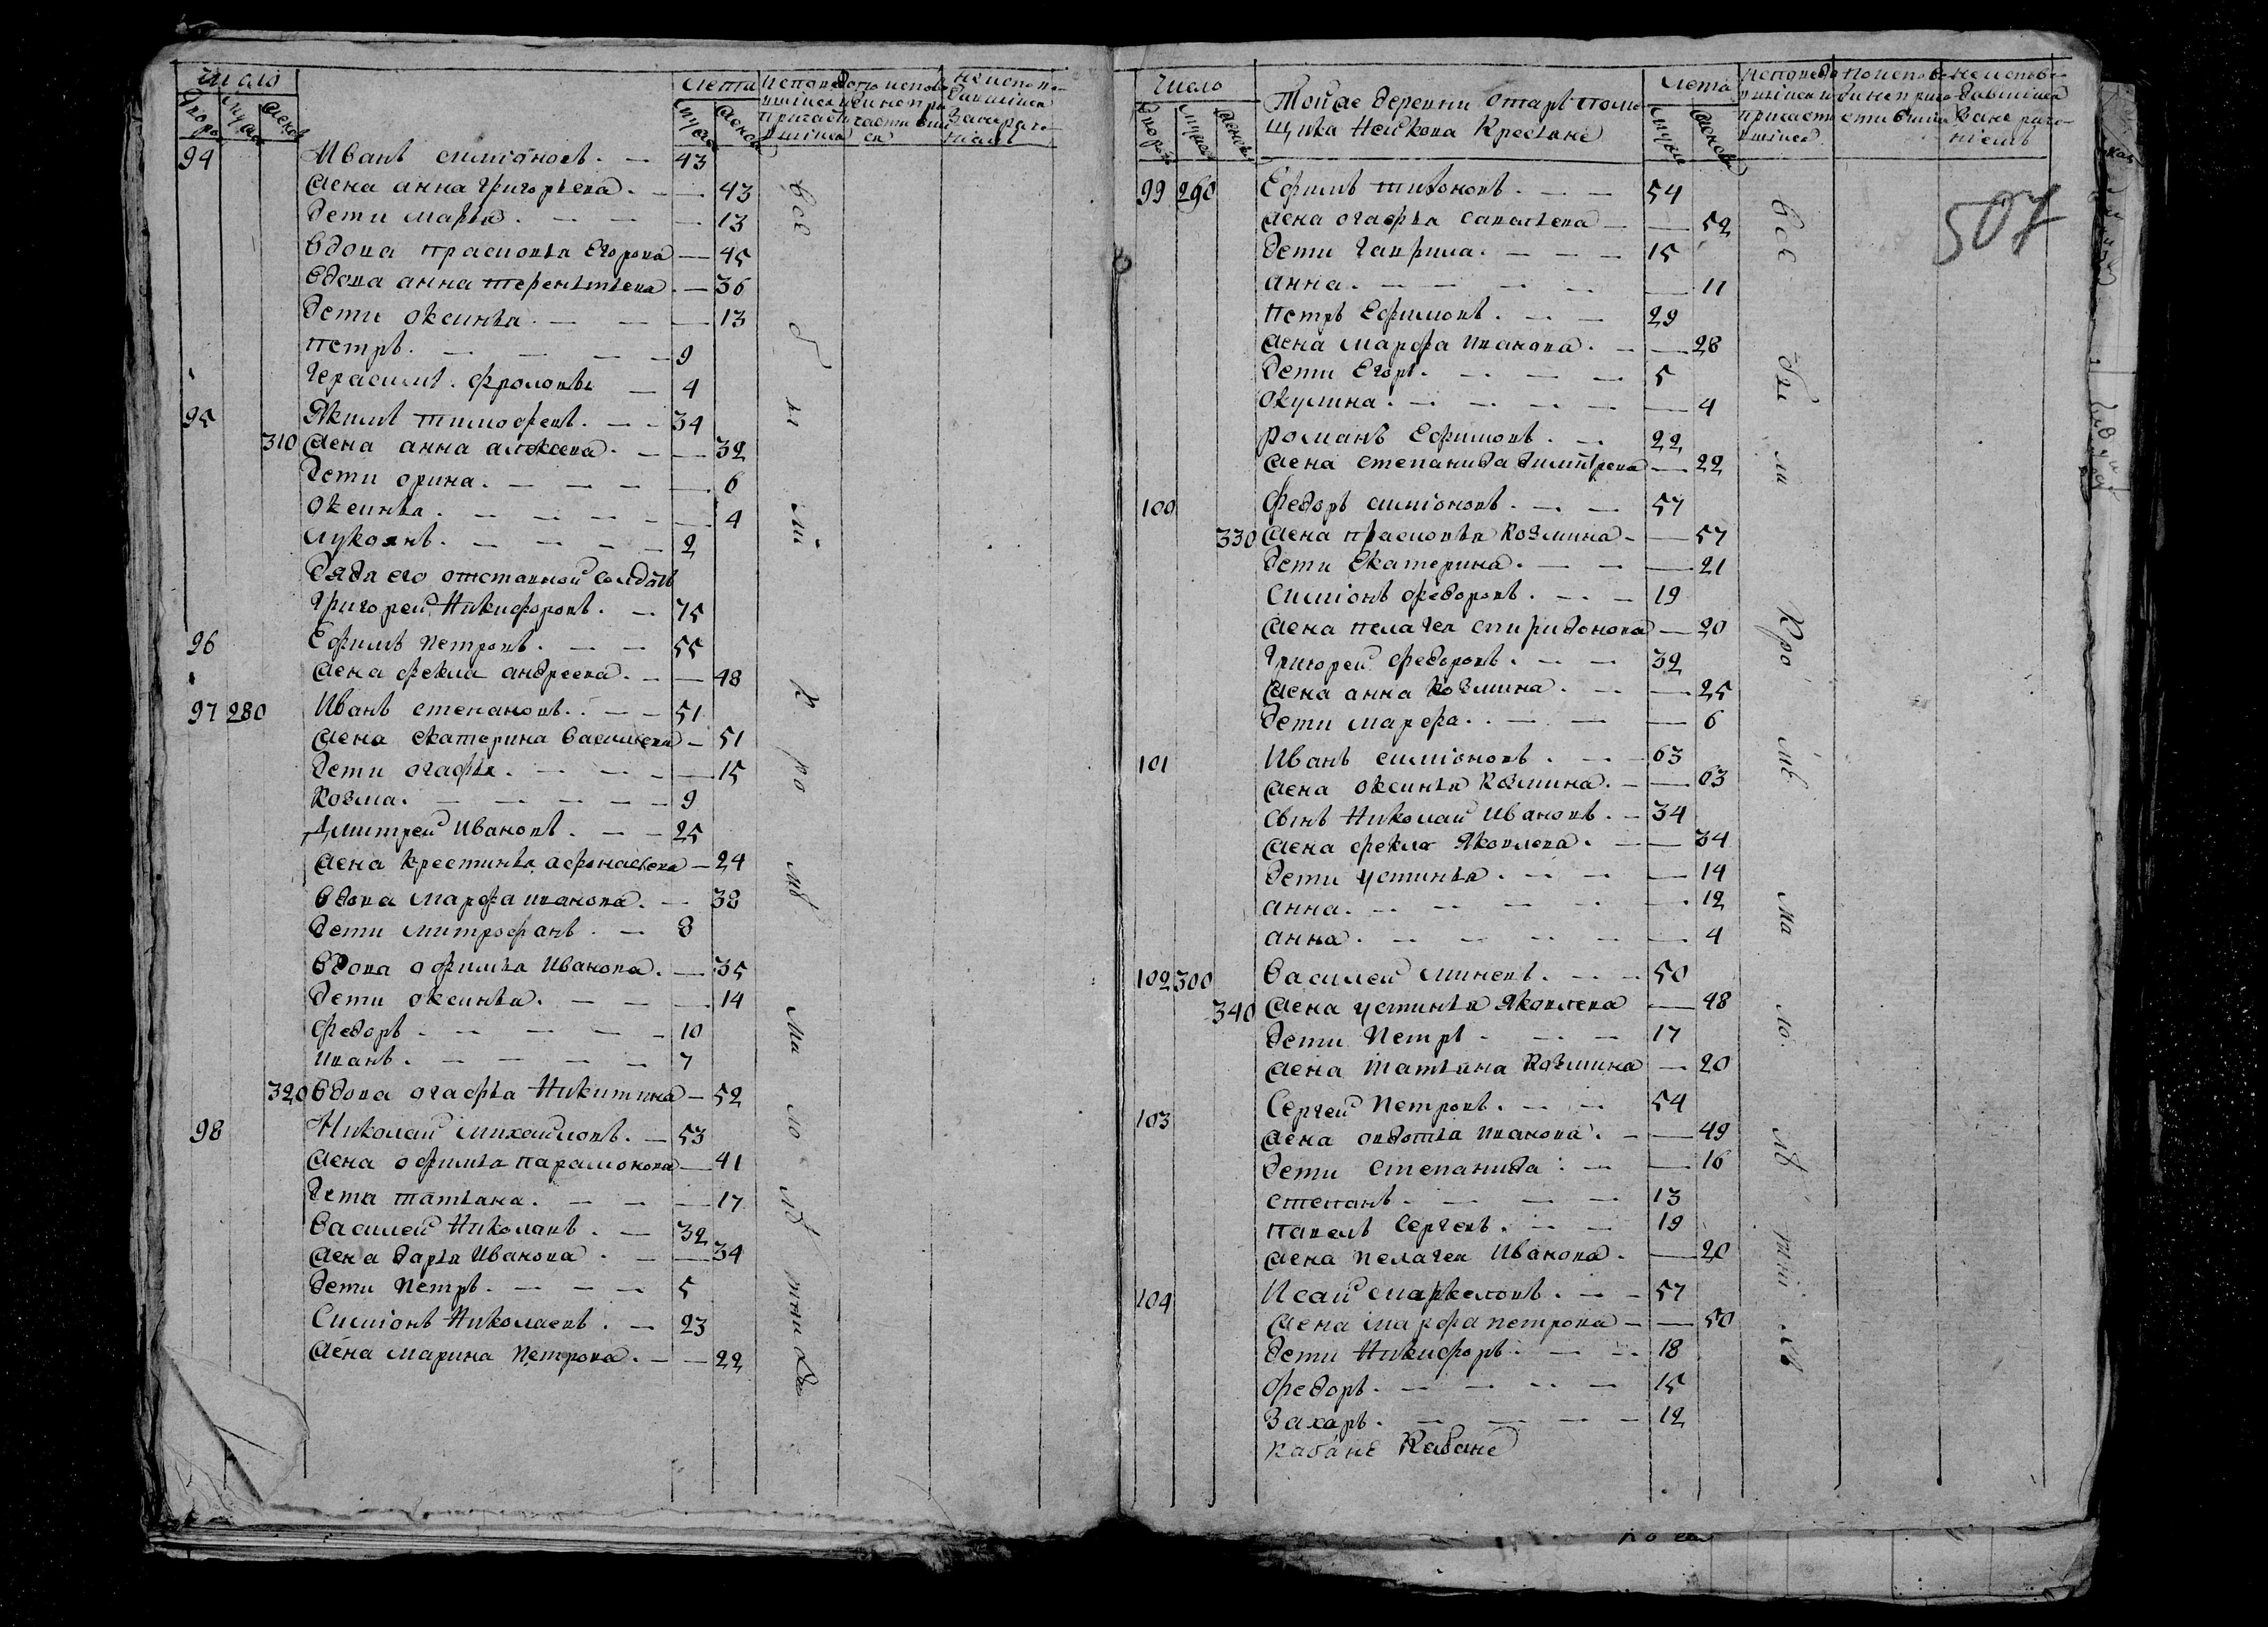 Число
Лета
Дворов Муж Женс
Муж Женс
94 Иванъ симїоновъ. 43
жена анна григорьева. 43
дети марья. 13
вдова прасковья Егорова 45
вдова анна терентьева. 36
дети оксинья. 13
петръ. 9
Герасимъ. фроловъ 4
95 Якимъ тимофеевъ. 34
310 жена анна алексеева. 32
дети орина. 6
оксинья. 4
лукоянъ. 2
дядя его отставной солдатъ
Григорей Никифоровъ. 75
96 Ефимъ петровъ. 55
жена фекла андреева. 48
97 280 Иванъ степановъ. 51
жена екатерина васильева 51
дети огафья. 15
козма. 9
дмитрей Ивановъ. 25
жена крестинья афонасьева 24
вдова марфа иванова. 38
дети митрофанъ. 8
вдова офимья Иванова. 35
дети оксинья. 14
федоръ. 10
иванъ. 7
320 вдова огафья Никитина 52
98 Николай михайловъ. 53
жена офимья парамонова 41
дети татьяна. 17
Василей Николаевъ. 32
жена дарья Иванова. 34
дети петръ. 5
Симїонъ Николаевъ. 23
жена марина петрова. 22
всѣ бы ли кро мѣ ма ло лѣ тни хъ
Число
Тойже деревни отаръ поме
щика Нейкова Крестьяне
Лета
Дворов Муж Женс
Муж Женс
507
99 290 Ефимъ тихоновъ. 54
жена огафья савельева 52
дети гаврила. 15
анна. 11
петръ Ефимовъ. 29
жена марфа иванова. 28
дети Егоръ. 5
окулина. 4
романъ Ефимовъ. 22
жена степанида димитрева 22
100 федоръ симїоновъ. 57
330 жена прасковья козмина 57
дети Екатерина. 21
Симїонъ федоровъ. 19
жена пелагея спиридонова 20
Григорей федоровъ. 32
жена анна козмина. 25
дети марфа. 6
101 Иванъ симїоновъ. 63
жена оксинья козмина. 63
сынъ Николай Ивановъ. 34
жена фекла Яковлева. 34
дети устинья. 14
анна. 12
анна. 4
102 300 Василей минеевъ. 50
340 жена устинья Яковлева 48
дети Петръ 17
жена татьяна козмина 20
103 Сергей петровъ. 54
жена овдотья иванова. 49
дети степанида. 16
степанъ. 13
павелъ Сергеевъ. 19
жена пелагея Иванова. 20
104 Исай маркеловъ. 57
жена марфа петрова 50
дети Никифоръ. 18
федоръ. 15
Захаръ. 12
всѣ бы ли кро мѣ ма ло лѣ тни хъ